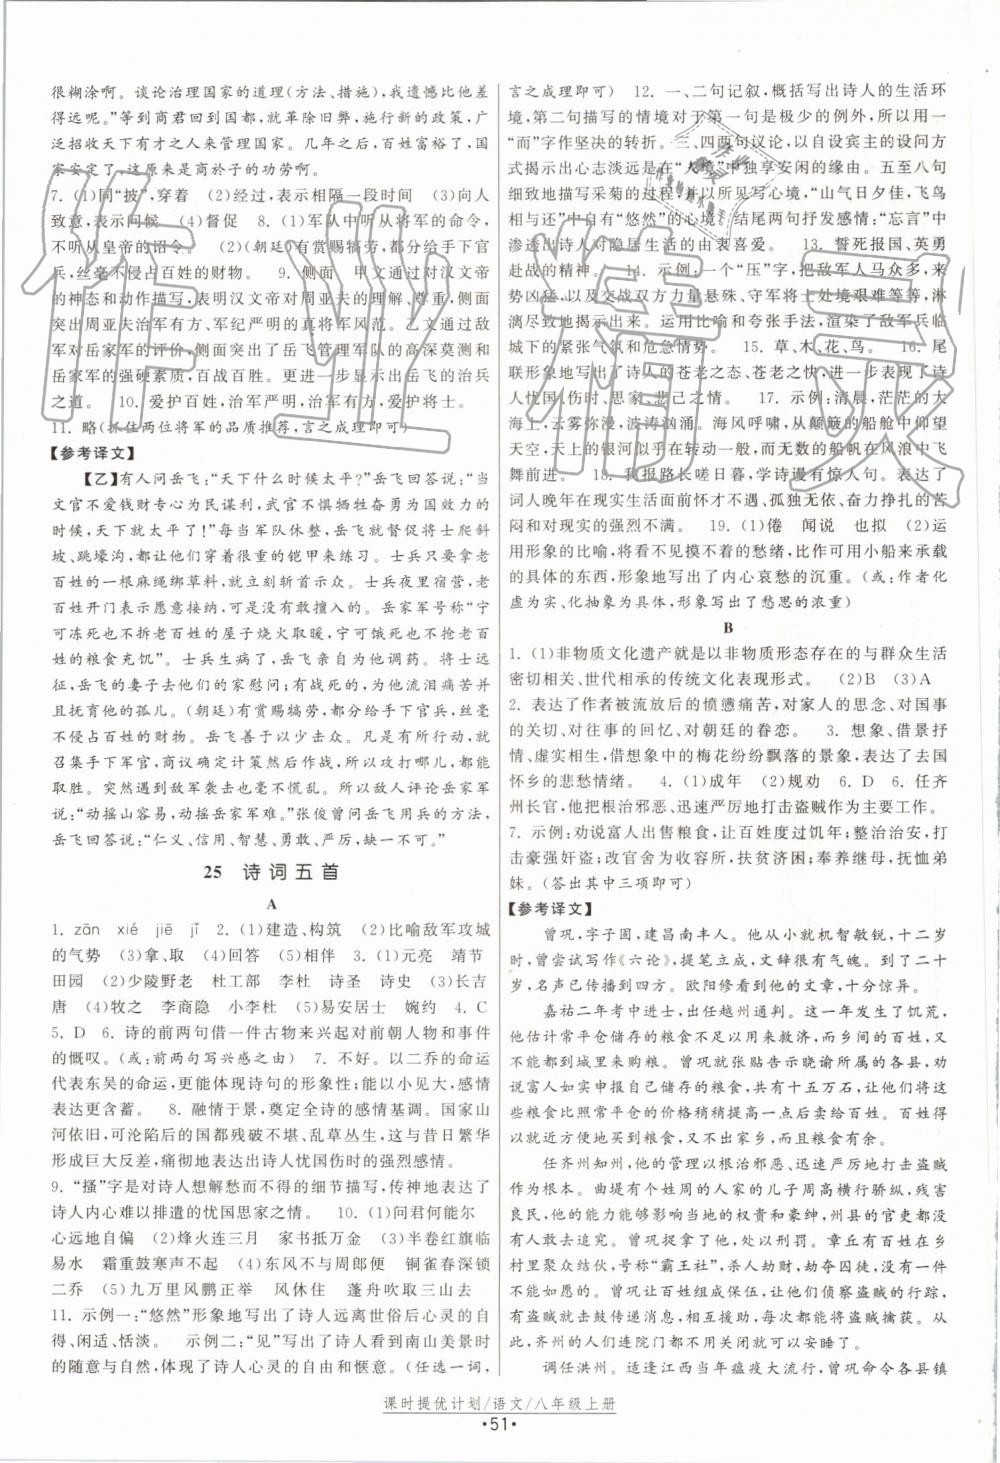 很糊涂啊。谈论治理国家的道理(方法、措施),我遗憾比他差
得远呢。”等到商君回到国都,就革除旧弊,施行新的政策,广
泛招收天下有才之人来管理国家。几年之后,百姓富裕了,国
家安定了,这原来是商於子的功劳啊!
7. (1)同“披”,穿着 (2)经过,表示相隔一段时间 (3)向人
致意,表示问候 (4)督促 8. (1)军队中听从将军的命令,
不听从皇帝的诏令。 (2)(朝廷)有赏赐犒劳,都分给手下官
兵,丝毫不侵占百姓的财物。 9. 侧面 甲文通过对汉文帝
的神态和动作描写,表明汉文帝对周亚夫的理解、尊重,侧面
突出周亚夫治军有方、军纪严明的真将军风范。乙文通过敌
军对岳家军的评价,侧面显示出了岳飞管理军队的高深莫测和
岳家军的强硬素质,百战百胜。更进一步显示出岳飞的治兵
之道。 10. 爱护百姓,治军严明,作战有方,爱护将士。
11. 略(抓住两位将军的品质推荐,言之成理即可)
【参考译文】
【乙】有人问岳飞:“天下什么时候太平?”岳飞回答说:“当
文官不爱钱财专心为民谋利,武官不惧牺牲奋勇为国效力的
时候,天下就太平了!”每当军队休整,岳飞就督促将士爬斜
坡、跳壕沟,都让他们穿着很重的铠甲来练习。士兵夺取老
百姓的一根麻绳绑草料,就立刻斩首示众。士兵夜里宿营,老
百姓开门表示愿意接纳,可是没有敢擅入的。岳家军号称“宁
可冻死也不拆老百姓的屋子烧火取暖,宁可饿死也不抢老百
姓的粮食充饥”。士兵生病了,岳飞亲自为他调药。将士远
征,岳飞的妻子去他们的家慰问;有战死的,为他流泪痛苦并
且抚育他的孤儿。(朝廷)有赏赐犒劳,都分给手下官兵,丝毫
不侵占百姓的财物。岳飞善于以少击众。凡是有所行动,就
召集手下军官,商议确定计策然后作战,所以攻打时前方都能
取胜。突然遇到敌军袭击也毫不慌乱。所以敌人评论岳家军
说:“动摇山容易,动摇岳家军难。”张俊曾问岳飞用兵的方法,
岳飞回答说:“仁义、信用、智慧、勇敢、严厉,缺一不可。”
25 诗词五首
A
1. zān xié jiē jǐ 2. (1)建造、构筑 (2)比喻敌军攻城
的气势 (3)拿、取 (4)回答 (5)相伴 3. (1)元亮 靖节
田园 (2)少陵野老 杜工部 李杜 诗圣 诗史 (3)长吉
唐 (4)牧之 李商隐 小李杜 (5)易安居士 婉约 4. C
5. D 6. 诗的前两句借一件古物来兴起对前朝人物和事件
的慨叹。(或:前两句写兴感之由) 7. 不好。以二乔的命运
代表东吴的命运,更能体现了诗句的形象性;能以小见大,感情
表达更含蓄。 8. 融情于景,奠定全诗的感情基调。国家山
河依旧,可沦陷后的国都残破不堪、乱草丛生,与昔日的繁华
形成巨大反差,痛彻地表达出诗人忧国伤时的强烈感情。
9. “搔”字是对诗人想解愁而不得的细节描写,传神地表达了
诗人内心难以排遣的忧国思家之情。 10. (1)问君何能尔
心远地自偏 (2)烽火连三月 家书抵万金 (3)半卷红旗临
易水 霜重鼓寒声不起 (4)东风不与周郎便 铜雀春深锁
二乔 (5)九万里风鹏正举 风休住 蓬舟吹取三山去
11. 示例一:“悠然”形象地写出了诗人远离世俗后心灵的自
得、闲适、恬淡。 示例二:“见”写出了诗人看到南山美景时
的随意与自然,体现了诗人心灵的自由和惬意。(任选一词,
言之成理即可) 12. 一、二句记叙,概括写出诗人的生活环
境,第二句描写的情境对于第一句是极少的例外,所以用一
“而”字作坚决的转折。三、四两句议论,以自设宾主的设问方
式揭示出心志淡远是在“人境”中独享安闲的缘由。五至八句
细致地描写采菊的过程,并以所见写心境,“山气日夕佳,飞鸟
相与还”中自有“悠然”的心境。结尾两句抒发感情:“忘言”中
渗透出诗人对隐居生活的由衷喜爱。 13. 誓死报国、英勇
赴战的精神。 14. 示例:一个“压”字,把敌军人马众多,来
势凶猛,以及交战双方力量悬殊、守军将士处境艰难等等,淋
漓尽致地揭示出来。运用比喻和夸张手法,渲染了敌军兵临
城下的紧张气氛和危急情势。 15. 草、木、花、鸟。 16. 尾
联形象地写出了诗人的苍老之态、苍老之快,进一步表达诗
人忧国、伤时、思家、悲己的情感。 17. 示例:清晨,茫茫大
海上,云雾弥漫,波涛汹涌。海风呼啸,从颠簸的船舱中仰望
天空,天上的银河似乎在转动一般,而无数的船帆在风浪中飞
舞前进。 18. 我报路长嗟日暮,学诗谩有惊人句。表达了
词人晚年在现实生活面前怀才不遇、孤独无依、奋力挣扎的苦
闷和对现实的强烈不满。 19. (1)倦 闻说 也拟 (2)运
用形象的比喻,将看不见摸不着的愁绪,比作可用小船来承载
的具体的东西,形象地写出了内心哀愁的沉重。(或:作者化
虚为实、化抽象为具体,形象写出了愁思的浓重)
B
1. (1)非物质文化遗产就是以非物质形态存在的与群众生活
密切相关、世代相承的传统文化表现形式。 (2)B (3)A
2. 表达了作者被流放后的愤懑痛苦、对家人的思念、对国事
的关切、对往事的回忆、对朝廷的眷恋。 3. 想象、借景抒
情、虚实相生,借想象中的梅花纷纷飘落的景象,表达了去国
怀乡的悲愁情绪。 4. (1)成年 (2)规劝 6. D 6. 任齐
州长官,他把根治邪恶、迅速严厉地打击盗贼作为主要工作。
7. 示例:劝说富人出售粮食,让百姓度过饥年;整治治安,打
击豪强奸盗;改官舍为救护所,扶贫济困;奉养继母,抚恤弟
妹。(答出其中三项即可)
【参考译文】
曾巩,字子固,建昌南丰人。他从小就机智敏锐,十二岁
时,曾尝试写作《六论》,提笔立成,文辞很有气魄。到了二十
岁,名声已传播到四方。欧阳修看到他的文章,十分惊异。
嘉祐二年考中进士,出任越州通判。这一年发生了饥荒,
他估计常平仓储存的粮食不足以用来救济,而乡间的百姓,又
不能都到城里来购粮。曾巩就张贴告示晓谕所属的各县,劝
说富人如实申报自己储存的粮食,共有十五万石,让他们将这
些粮食以比常平仓的价格稍稍提高一点后卖给百姓。百姓得
以方便地买到粮食,又不出家乡,而且粮食有余。
任齐州知州,他的管理以根治邪恶、迅速严厉地打击盗贼
为根本。曲堤有个姓周的人家的儿子周高横行骄纵,残害
良民,他的势力能够影响当地的权贵和豪绅,州县的官吏都没有
敢去追究的,曾巩逮捕了他,将他法办。章丘有百姓在乡
村里聚众结伙,号称“霸王社”,杀人劫财,劫夺囚徒,没有不
能如愿的。曾巩让百姓组成保伍,让他们侦察盗贼的行踪,
有盗贼就击鼓传递消息,相互援助,每次都能将盗贼擒获。从
此,齐州的人们连院门都不用关闭就可以安睡了。
调任洪州。适逢江西当年瘟疫大流行,曾巩命令各县镇
课时提优计划/语文/八年级上册
·51·
作业精灵